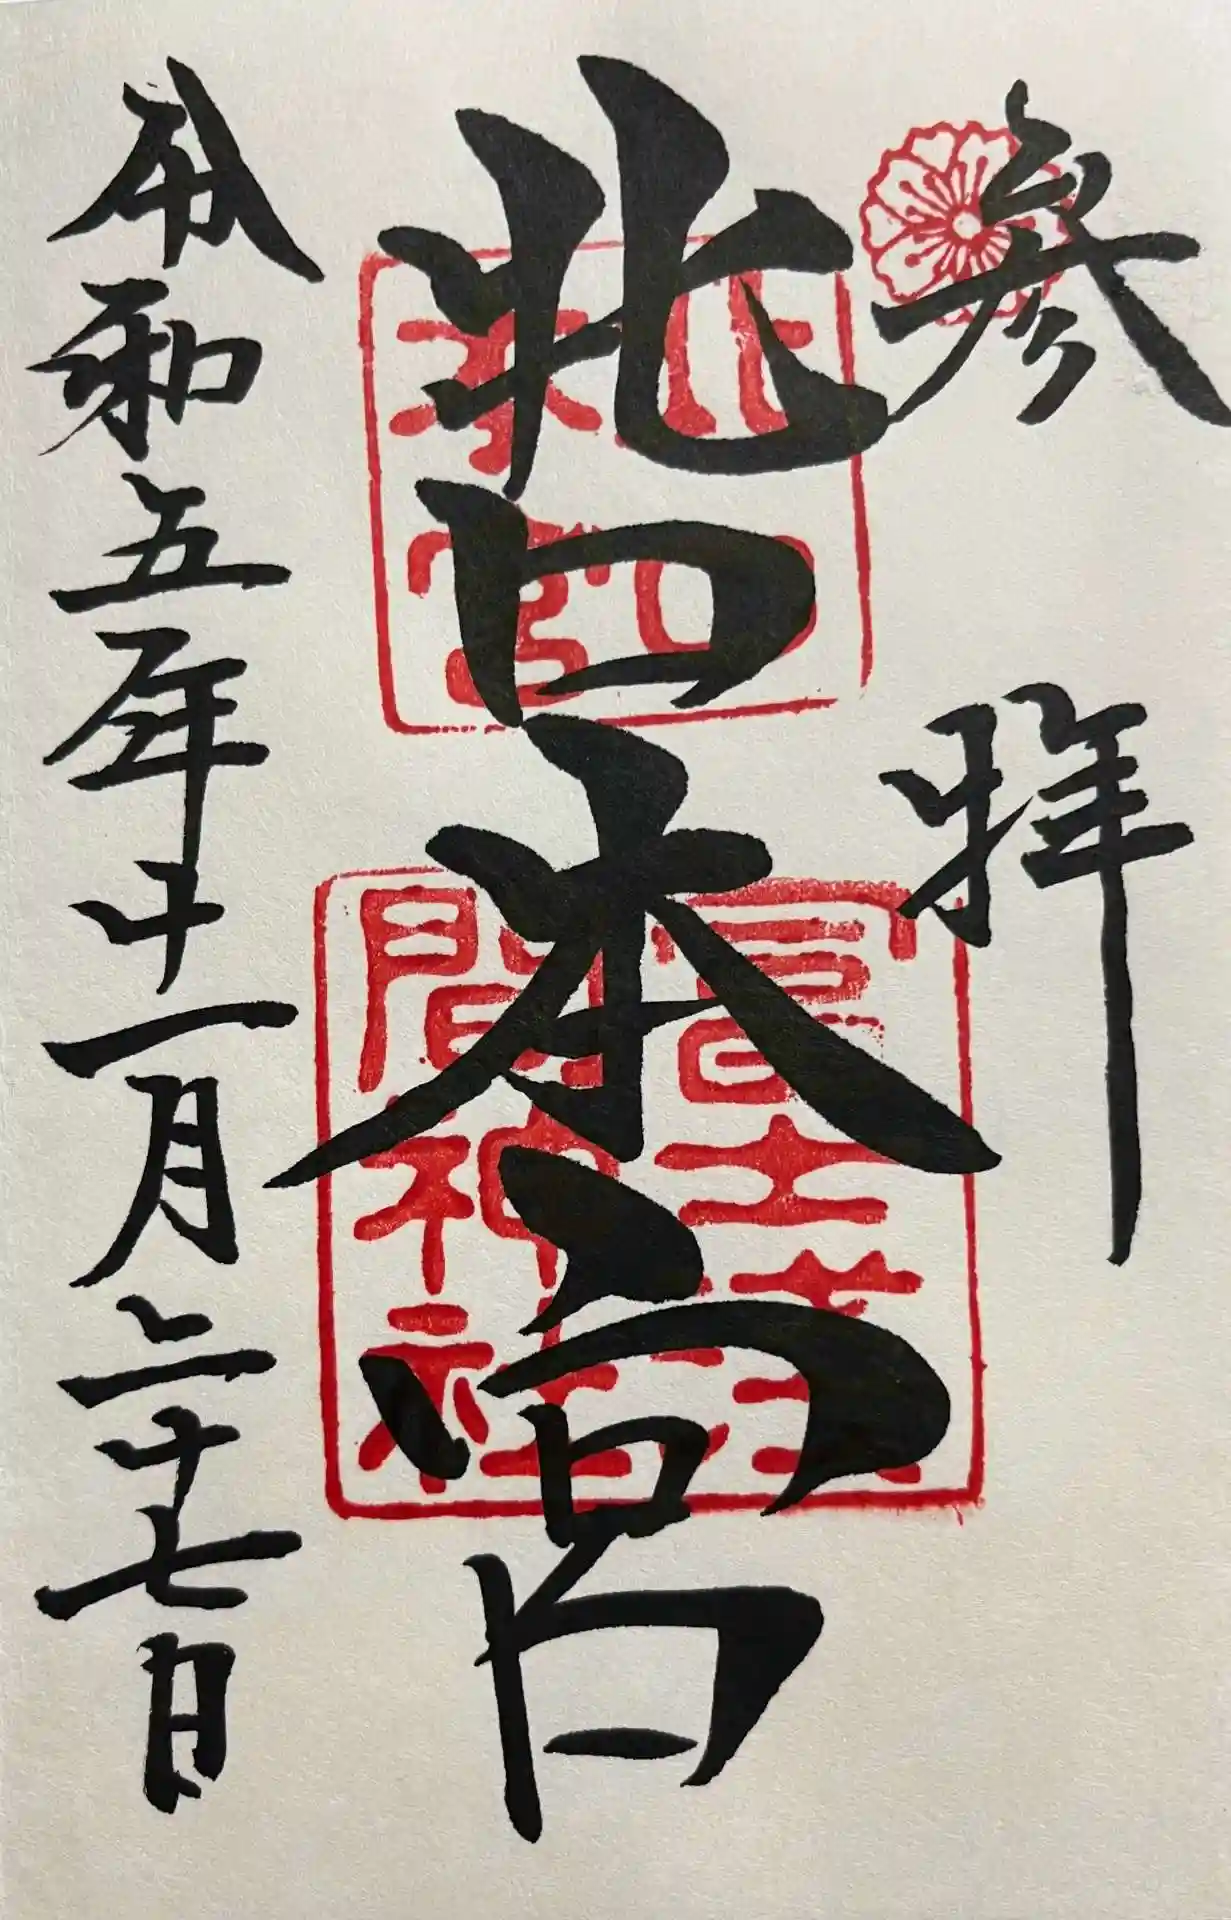 参拝
北口本宮
北口
本宮
冨士浅
間神社
令和五年十一月二十七日